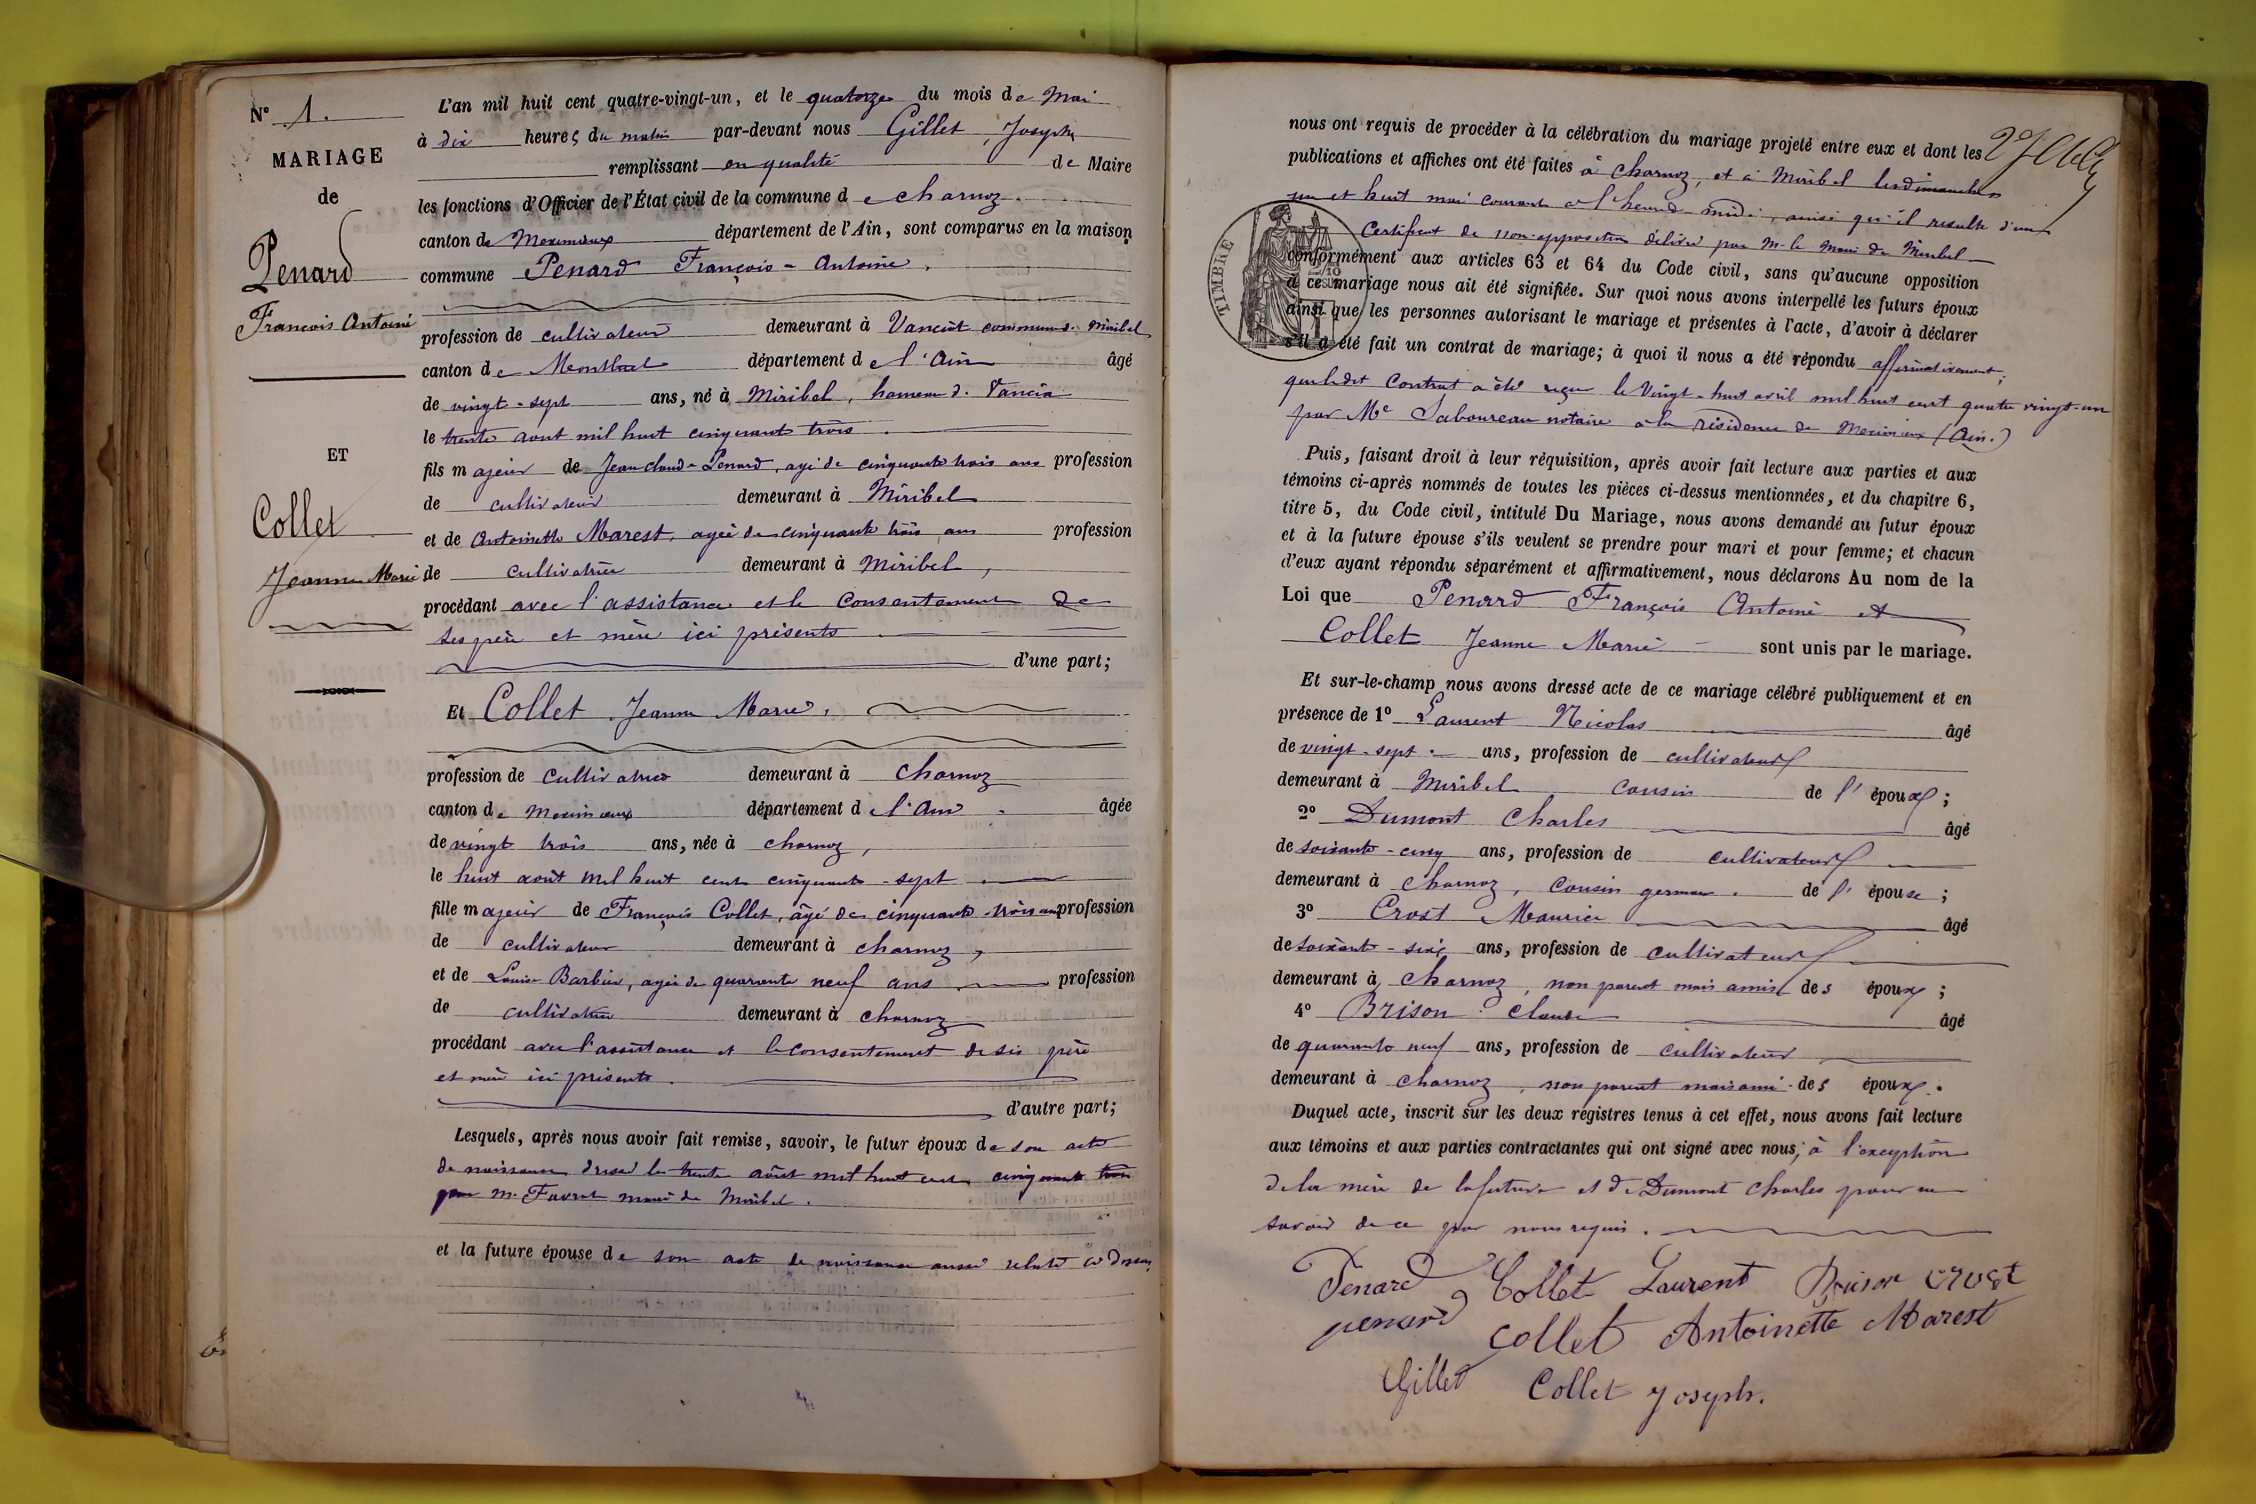 N° 1.
MARIAGE
de
Penard
François Antoine
ET
Collet
Jeanne Marie
L'an mil huit cent quatre-vingt-un, et le quatorze du mois de Mai
à dix heures du matin par-devant nous Gillet, Joseph
remplissant en qualité de Maire
les fonctions d'Officier de l'État civil de la commune de Charnoz.
canton de Meximieux département de l'Ain, sont comparus en la maison
commune Penard François-Antoine.
profession de cultivateur demeurant à Vanciat commune de Miribel
canton de Montluel département de l'Ain âgé
de vingt-sept ans, né à Miribel, hameau de Vancia
le trente aout mil huit cinquante trois.
fils majeur de Jean Claude Penard, agé de cinquante trois ans profession
de cultivateur demeurant à Miribel
et de Antoinette Marest, agée de cinquante trois ans profession
de cultivatrice demeurant à Miribel,
procédant avec l'assistance et le consentement de
ses père et mère ici présents
d'une part;
Et Collet Jeanne Marie,
profession de cultivatrice demeurant à Charnoz
canton de Meximieux département de l'Ain âgée
de vingt trois ans, née à Charnoz,
le huit août mil huit cent cinquante-sept
fille majeur de François Collet, âgé de cinquante-trois ans profession
de cultivateur demeurant à Charnoz,
et de Louise Barbier, agée de quarante neuf ans profession
de cultivatrice demeurant à Charnoz
procédant avec l'assistance et le consentement de ses père
et mère ici présents.
d'autre part;
Lesquels, après nous avoir fait remise, savoir, le futur époux de son acte
de naissance dressé le trente août mil huit cent cinquante trois
par M. Favrot maire de Miribel.
et la future épouse de son acte de naissance aussi relaté ci dessus,
nous ont requis de procéder à la célébration du mariage projeté entre eux et dont les
publications et affiches ont été faites à Charnoz, et à Miribel les dimanches
un et huit mai courant à l'heure de midi, ainsi qu'il resulte d'un
Certificat de non-opposition délivré par M. le Maire de Miribel
TIMBRE
conformément aux articles 63 et 64 du Code civil, sans qu'aucune opposition
à ce mariage nous ait été signifiée. Sur quoi nous avons interpellé les futurs époux
ainsi que les personnes autorisant le mariage et présentes à l'acte, d'avoir à déclarer
s'il a été fait un contrat de mariage; à quoi il nous a été répondu affirmativement;
que ledit Contrat a été reçu le Vingt-huit avril mil huit cent quatre vingt-un
par Me Saboureau notaire à la résidence de Meximieux (Ain.)
Puis, faisant droit à leur réquisition, après avoir fait lecture aux parties et aux
témoins ci-après nommés de toutes les pièces ci-dessus mentionnées, et du chapitre 6,
titre 5, du Code civil, intitulé Du Mariage, nous avons demandé au futur époux
et à la future épouse s'ils veulent se prendre pour mari et pour femme; et chacun
d'eux ayant répondu séparément et affirmativement, nous déclarons Au nom de la
Loi que Penard François Antoine et
Collet Jeanne Marie sont unis par le mariage.
Et sur-le-champ nous avons dressé acte de ce mariage célébré publiquement et en
présence de 1° Laurent Nicolas âgé
de vingt-sept ans, profession de cultivateur
demeurant à Miribel cousin de l'époux;
2° Dumont Charles âgé
de soixante-cinq ans, profession de cultivateur
demeurant à Charnoz, cousin germain de l'épouse;
3° Crost Maurice âgé
de soixante-six ans, profession de cultivateur
demeurant à Charnoz, non parent mais amis des époux;
4° Brison Claude âgé
de quarante neuf ans, profession de cultivateur
demeurant à Charnoz, non parent mais ami des époux.
Duquel acte, inscrit sur les deux registres tenus à cet effet, nous avons fait lecture
aux témoins et aux parties contractantes qui ont signé avec nous, à l'exception
de la mère de la future et de Dumont Charles pour ne
savoir de ce par nous requis.
Penard Collet Laurent Brison crost
penard Collet Antoinette Marest
Gillet Collet Joseph.